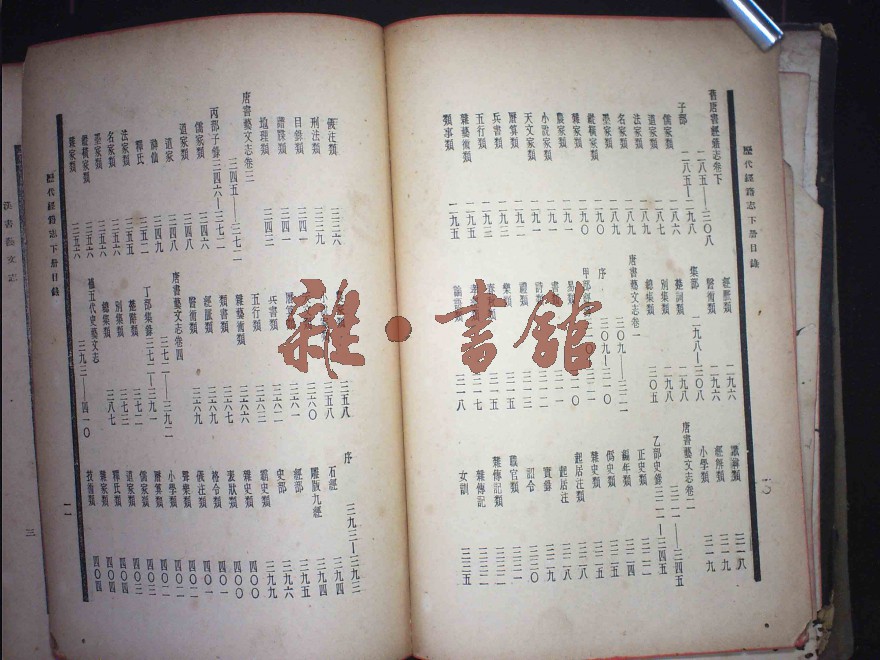 歷代經籍志下册目錄
舊唐書經籍志卷下
二八五——三〇八
子部
二八五——二九八
儒家類 二八六
道家類 二八八
法家類 二八九
名家類 二八九
墨家類 二九〇
縱橫家類 二九〇
雜家類 二九〇
農家類 二九一
小說家類 二九一
天文家類 二九一
曆算類 二九二
兵書類 二九二
五行類 二九三
雜藝術類 二九五
類事類 二九五
經脈類 二九六
醫術類 二九六
集部 二九八——三〇八
楚詞類 二九八
別集類 二九八
總集類 三〇五
唐書藝文志卷一
三〇九——三二一
序 三〇九——三一〇
甲部經錄
易類
禮類
樂類
論語類 三一八
讖緯類 三一八
經解類 三一九
小學類 三一九
唐書藝文志卷二
三二一——三四五
乙部史錄 三二一——三四五
正史類 三二二
編年類 三二四
偽史類 三二五
雜史類 三二五
起居注類 三二八
起居注 三二八
實錄 三二九
詔令 三三〇
職官類 三三一
雜傳記類 三三二
雜傳記 三三二
女訓 三三五
一〇
儀注類 三三六
刑法類 三三九
目錄類 三四一
譜牒類 三四一
地理類 三四三
唐書藝文志卷三
三四五——三七二
丙部子錄 三四六——三七二
儒家類 三四六
道家類 三四八
道家 三四八
神仙 三四九
釋氏 三五二
法家類 三五五
名家類 三五六
墨家類 三五六
縱橫家類 三五六
雜家類 三五六
三五八
三六〇
曆算類 三六一
兵書類 三六二
五行類 三六三
雜藝術類 三六六
類書類 三六七
經脈類 三六九
醫術類 三六九
唐書藝文志卷四
三七二——三九二
丁部集錄 三七二——三九一
楚辭類 三七三
別集類 三七三
總集類 三八七
補五代史藝文志
三九三——四一〇
序 三九三——三九三
石經 三九四
雕版九經 三九四
經部 三九六
史部 三九九
霸史類 四〇〇
雜史類 四〇〇
表狀類 四〇一
格令類 四〇一
儀注類 四〇一
聲樂類 四〇二
小學類 四〇二
曆算類 四〇三
儒家類 四〇三
道家類 四〇三
釋氏類 四〇四
雜家類 四〇四
技術類 四〇四
歷代經籍志下册目錄
一一
漢書藝文志
三
雜·書館